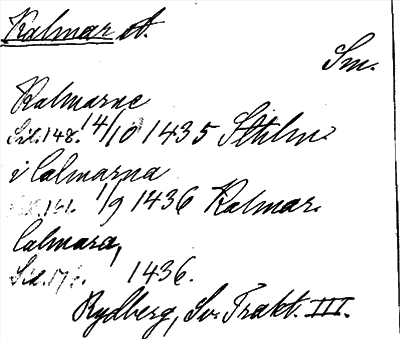 Kalmar st.
Sm.
Kalmarne
Sid. 148. 14/10 1435 Sthlm
i Calmarna
161. 1/9 1436 Kalmar.
Calmara,
Sid. 1436.
Rydberg, Sv. Trakt. III.